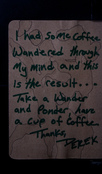 I had some Coffee
Wandered through
My mind and this
is the result...
Take a Wander
and Ponder, have
a cup of Coffee.
Thanks,
DEREK